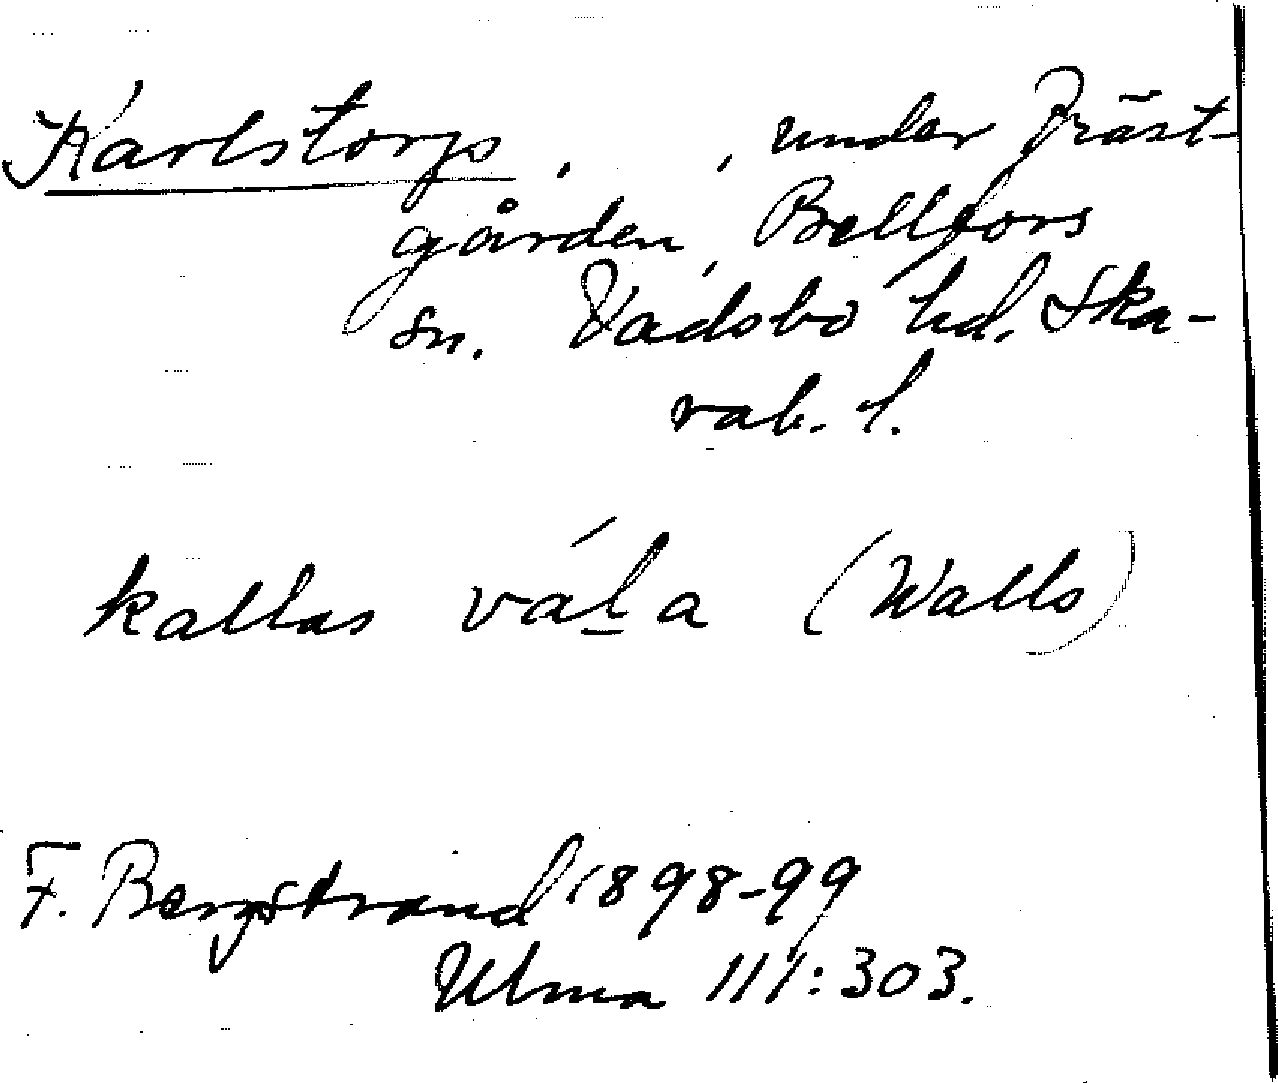 Karlstorp, , under Präst-
gården, Bellfors
sn. Vadsbo hd. Ska-
rab. l.
kallas váḻa (Walls)
F. Bergstrand 1898-99
Ulma 111:303.